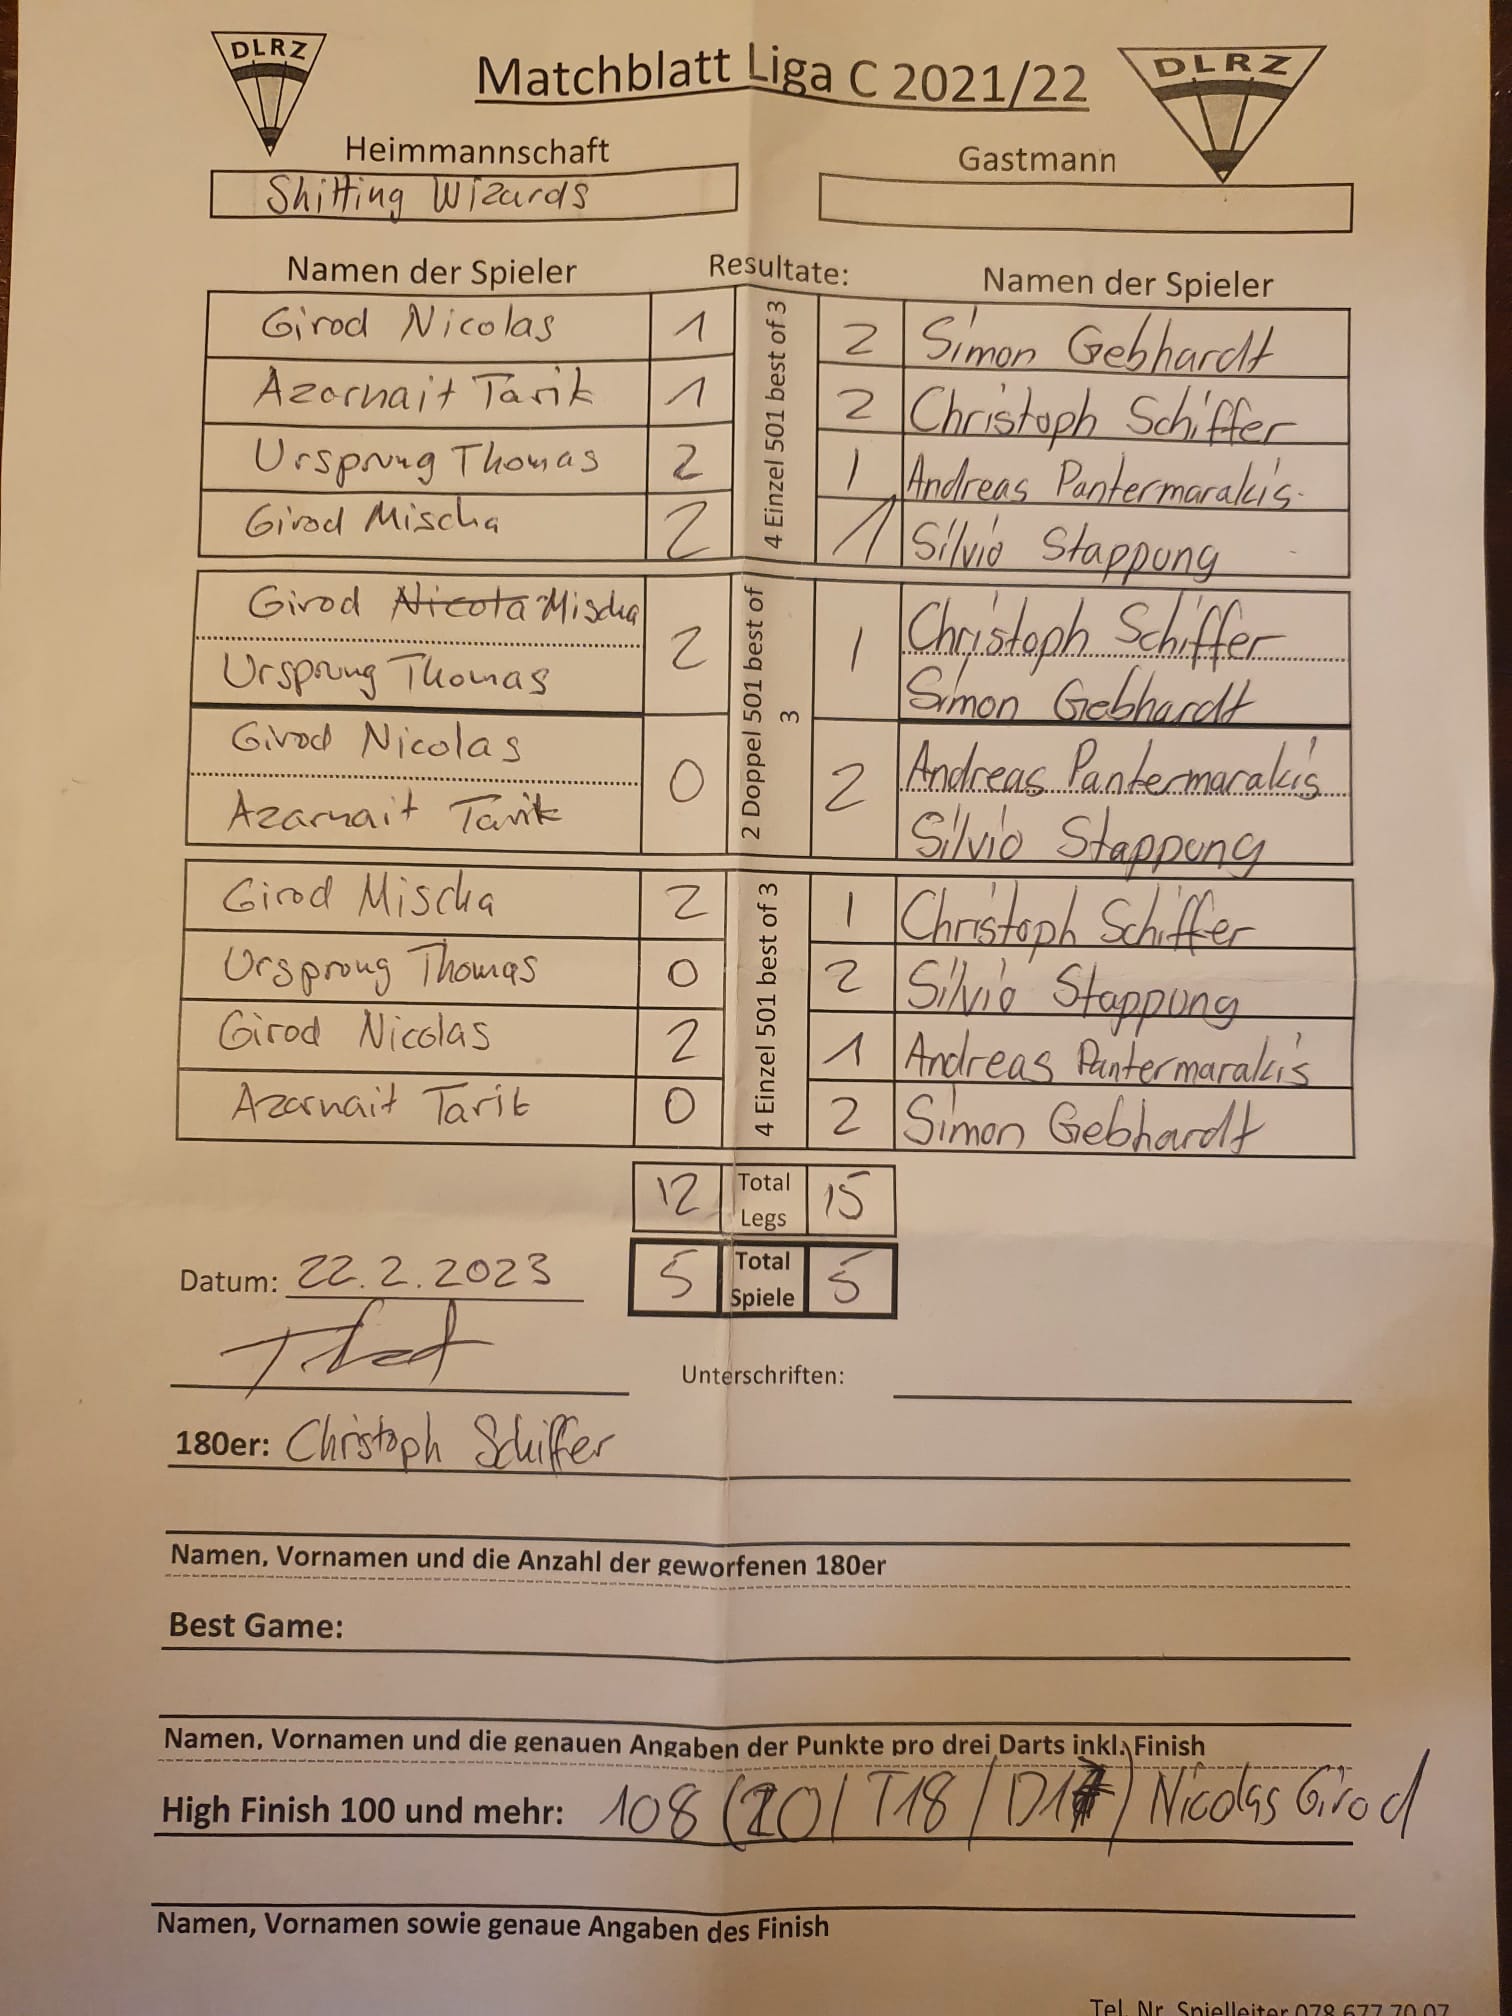 DLRZ
Matchblatt Liga C 2021/22
DLRZ
Heimmannschaft
Gastmann
Shitting Wizards
Namen der Spieler
Resultate:
Namen der Spieler
4 Einzel 501 best of 3
Girod Nicolas 1 2 Simon Gebhardt
Azarnait Tarik 1 2 Christoph Schiffer
Ursprung Thomas 2 1 Andreas Pantermarakis
Girod Mischa 2 1 Silvio Stappung
2 Doppel 501 best of 3
Girod Nicola Mischa 2 1 Christoph Schiffer
Ursprung Thomas Simon Gebhardt
Girod Nicolas 0 2 Andreas Pantermarakis
Azarnait Tarik Silvio Stappung
4 Einzel 501 best of 3
Girod Mischa 2 1 Christoph Schiffer
Ursprung Thomas 0 2 Silvio Stappung
Girod Nicolas 2 1 Andreas Pantermarakis
Azarnait Tarik 0 2 Simon Gebhardt
12 Total Legs 15
5 Total Spiele 5
Datum: 22.2.2023
Unterschriften:
180er: Christoph Schiffer
Namen, Vornamen und die Anzahl der geworfenen 180er
Best Game:
Namen, Vornamen und die genauen Angaben der Punkte pro drei Darts inkl. Finish
High Finish 100 und mehr: 108 (20/ T18 / ) Nicolas Girod
Namen, Vornamen sowie genaue Angaben des Finish
Tel. Nr. Spielleiter 078 677 70 07